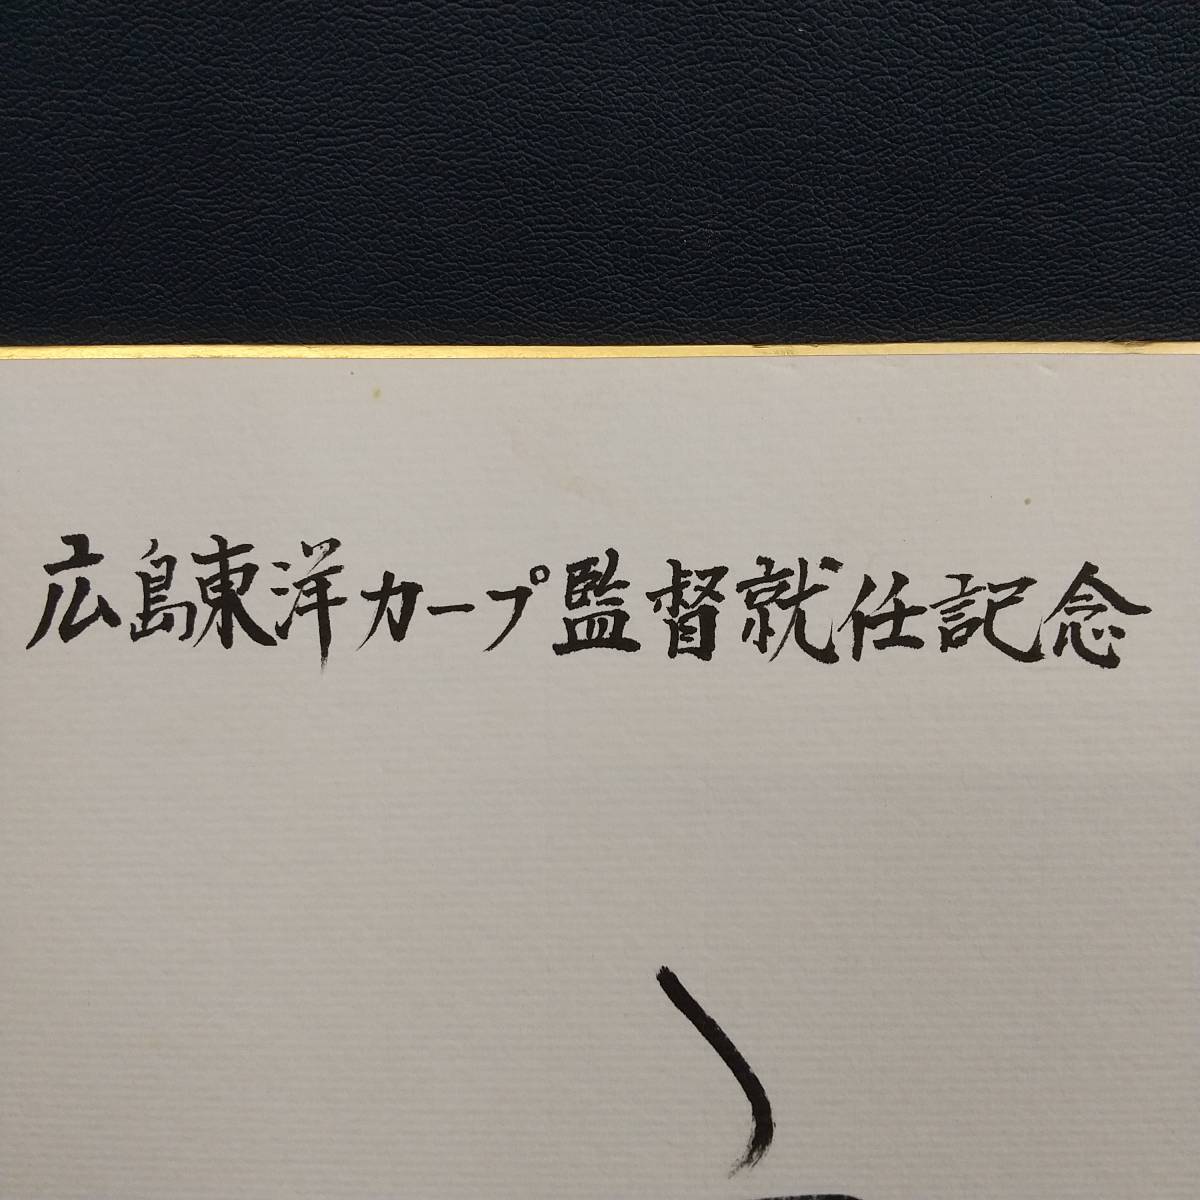 広島東洋カープ監督就任記念